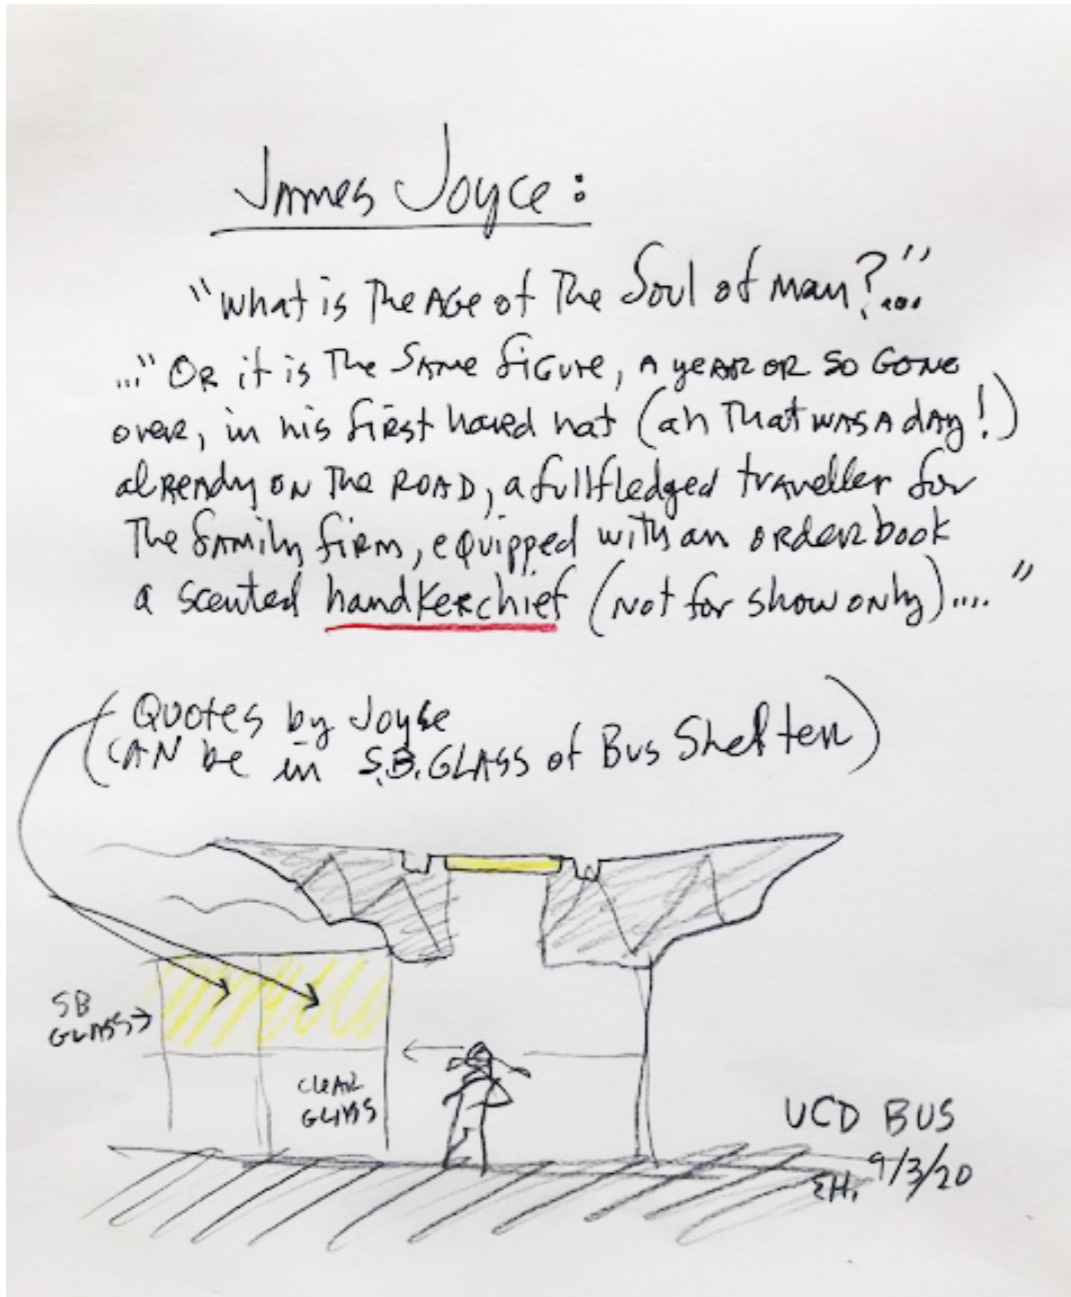 James Joyce:
"What is The AGE of The Soul of man?"...
..."OR it is The SAME figure, A yEAR OR SO GONE
over, in his first hard hat (ah That WAS A dAy!)
alREADy ON The ROAD, a fullfledged traveller for
The family firm, equipped with an orderbook
a scented handkerchief (Not for show only)...."
(Quotes by Joyce
CAN be in S.B. GLASS of Bus Shelter)
SB
GLASS
CLEAR
GLASS
UCD BUS
EH. 9/3/20